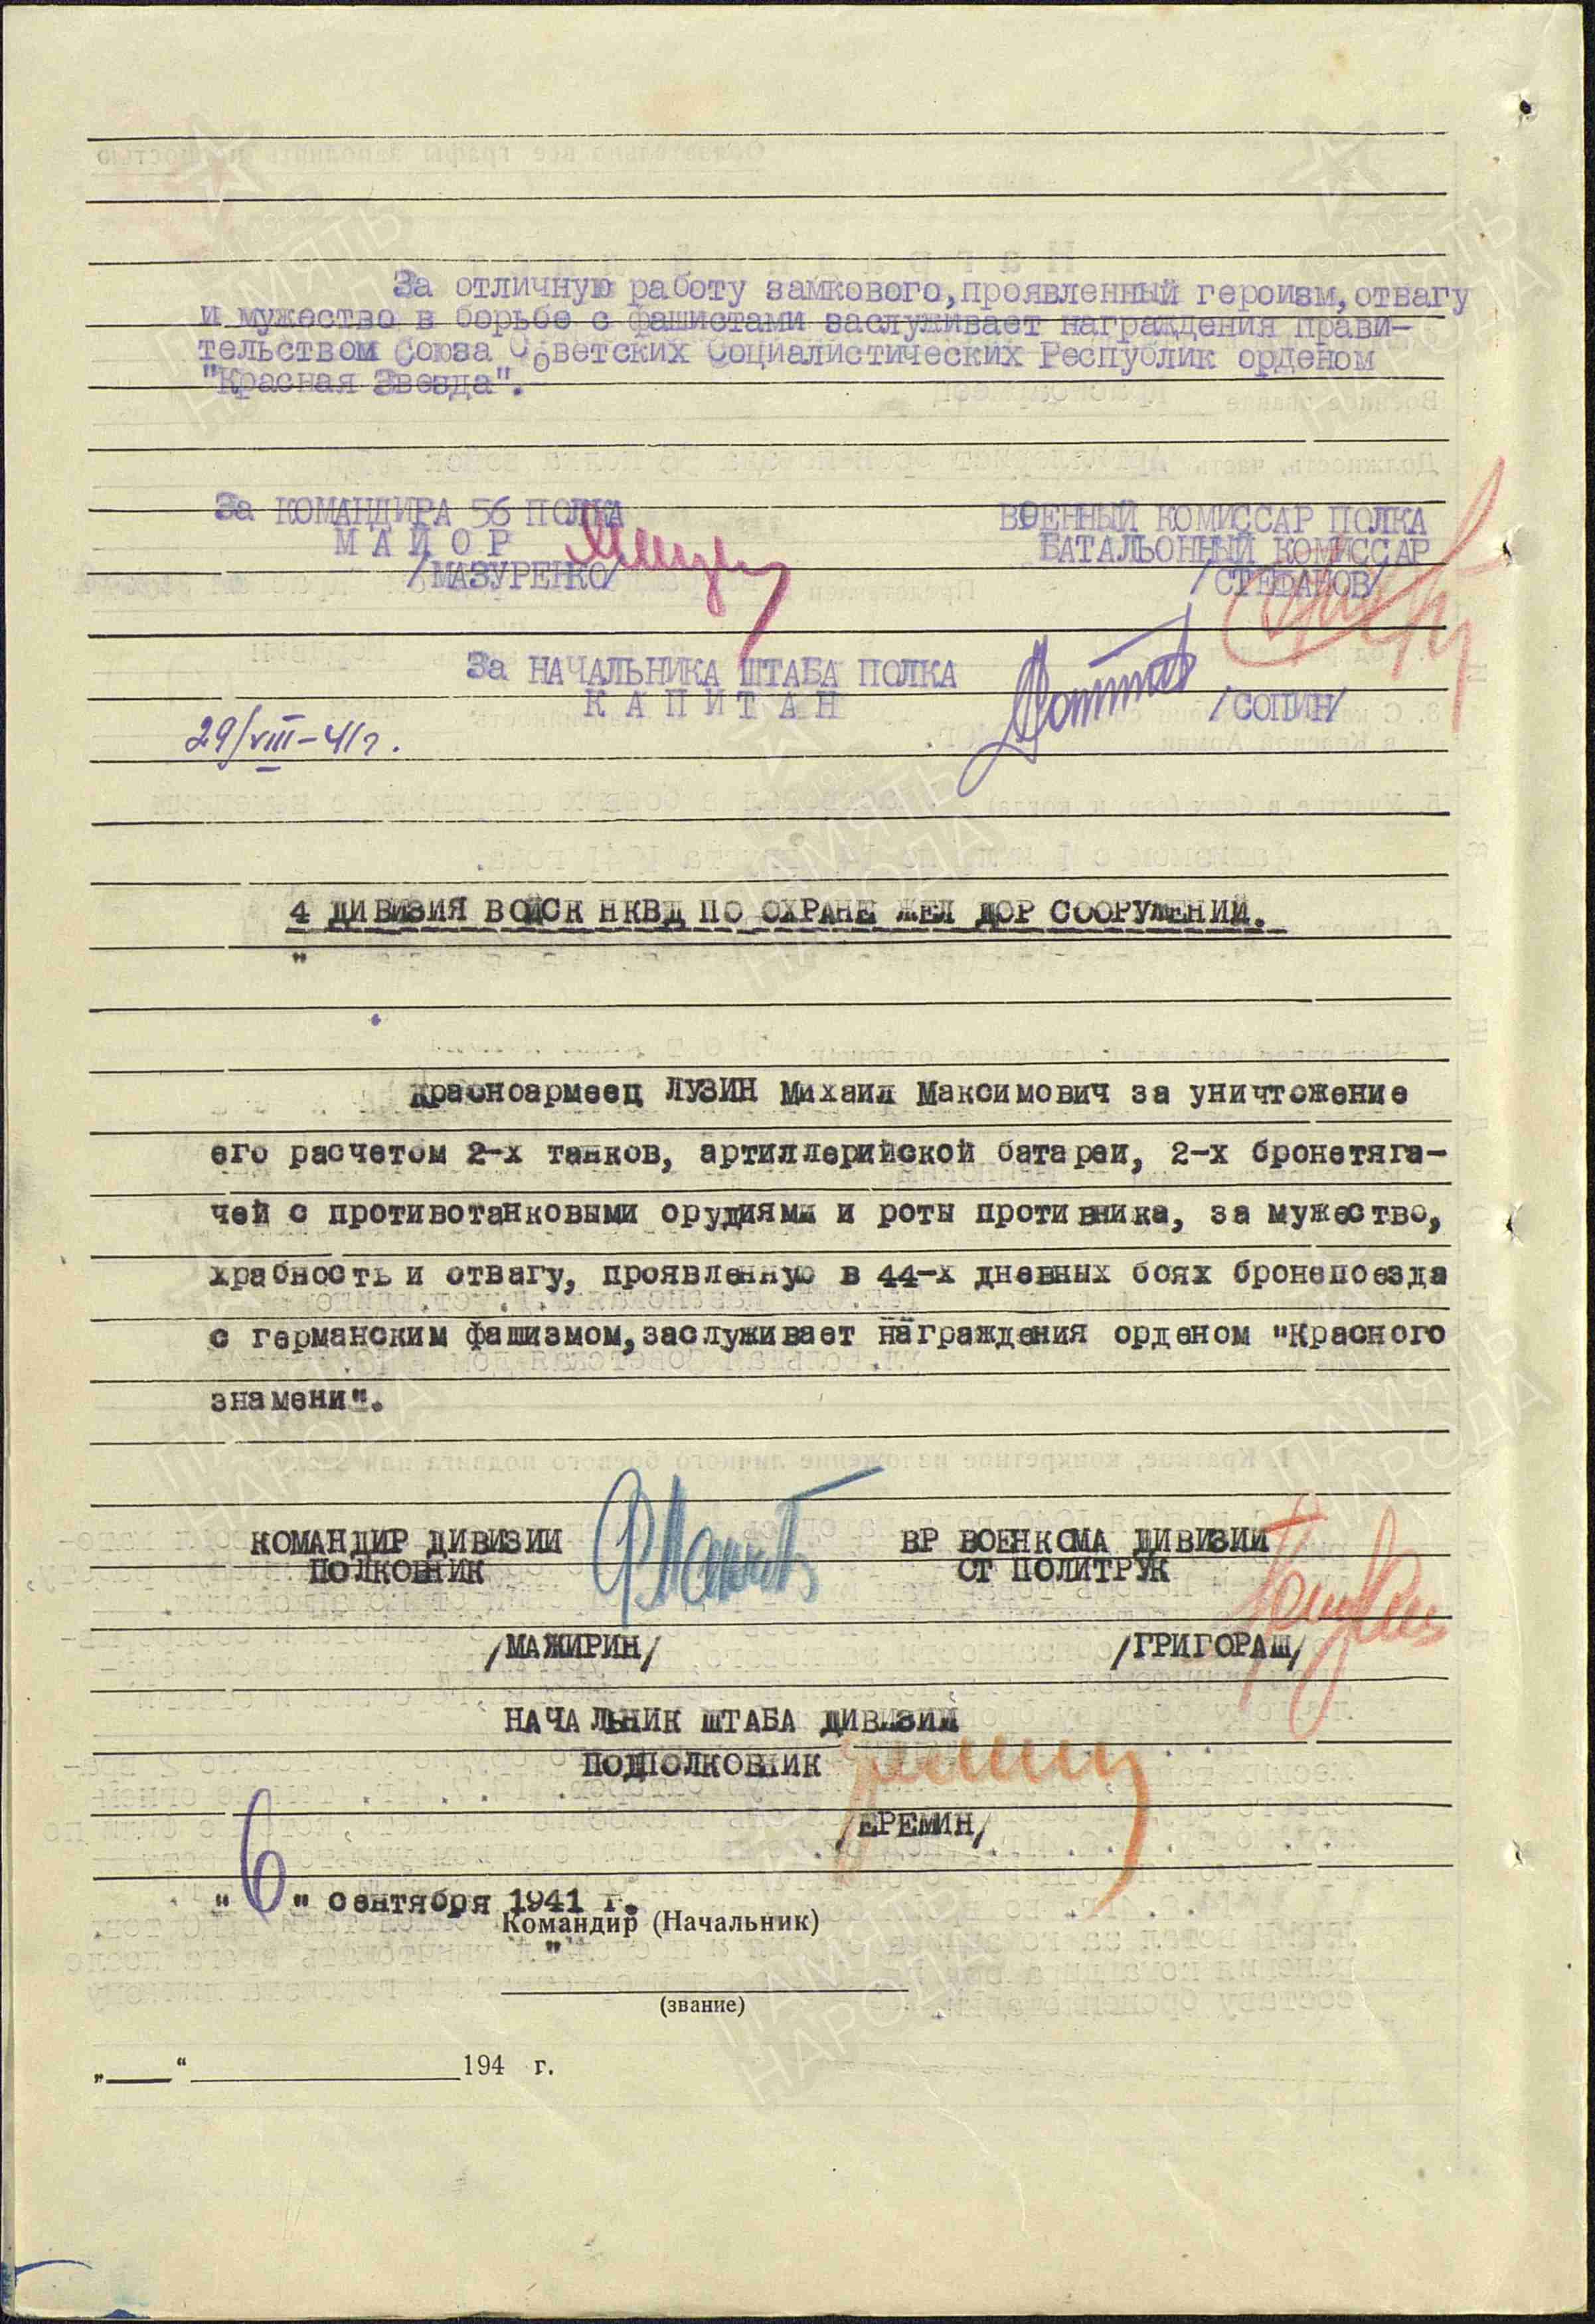 За отличную работу замкового,проявленный героизм,отвагу
и мужество в борьбе с фашистами заслуживает награждения Прави-
тельством Союза Советских Социалистических Республик орденом
"Красная Звезда".
За КОМАНДИРА 56 ПОЛКА
МАЙОР
/МАЗУРЕНКО/
ВОЕННЫЙ КОМИССАР ПОЛКА
БАТАЛЬОННЫЙ КОМИССАР
/СТЕФАНОВ/
За НАЧАЛЬНИКА ШТАБА ПОЛКА
КАПИТАН
/СОПИН/
29/VIII-41г.
4 ДИВИЗИЯ ВОЙСК НКВД ПО ОХРАНЕ ЖЕЛ ДОР СООРУЖЕНИЙ.
"
Красноармеец ЛУЗИН Михаил Максимович за уничтожение
его расчетом 2-х танков, артиллерийской батареи, 2-х бронетяга-
чей с противотанковыми орудиями и роты противника, за мужество,
храбность и отвагу, проявленную в 44-х дневных боях бронепоезда
с германским фашизмом,заслуживает награждения орденом "Красного
знамени".
КОМАНДИР ДИВИЗИИ
ПОЛКОВНИК
/МАЖИРИН/
ВР ВОЕНКОМА ДИВИЗИИ
СТ ПОЛИТРУК
/ГРИГОРАШ/
НАЧАЛЬНИК ШТАБА ДИВИЗИИ
ПОДПОЛКОВНИК
/ЕРЕМИН/
"6" сентября 1941 г.
Командир (Начальник)
"
(звание)
„___“ ____________194 г.
ПАМЯТЬ
НАРОДА